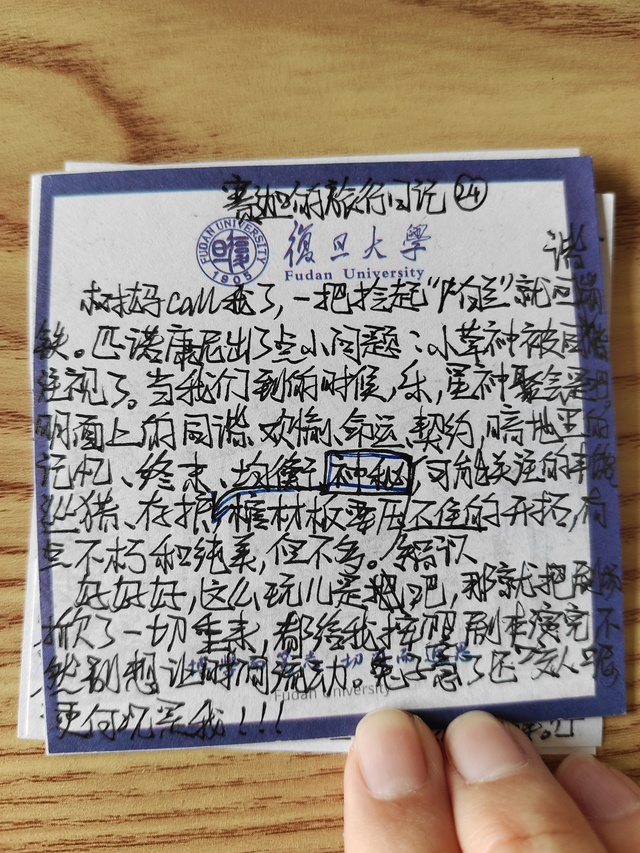 的旅行日记㉔
復旦大學
FUDAN UNIVERSITY
1905
Fudan University
谐
call我了,一把捡起"阿兰"就回
铁。匹诺康尼出了点小问题:小草神被同
注视了。当我们到的时候,乐,星神聚会是吧,
明面上的同谐、欢愉、命运、契约,暗地里的
记忆、终末、均衡、神秘,可能关注的
巡猎、存护,棺材板要压不住的开拓,有
点不朽和纯美,但不多。
好好好,这么玩儿是吧,那就把
掀了一切重来,都给我按照剧本演完不
然别想让时间流动。兔子急了还
更何况是我!!!
Fudan University